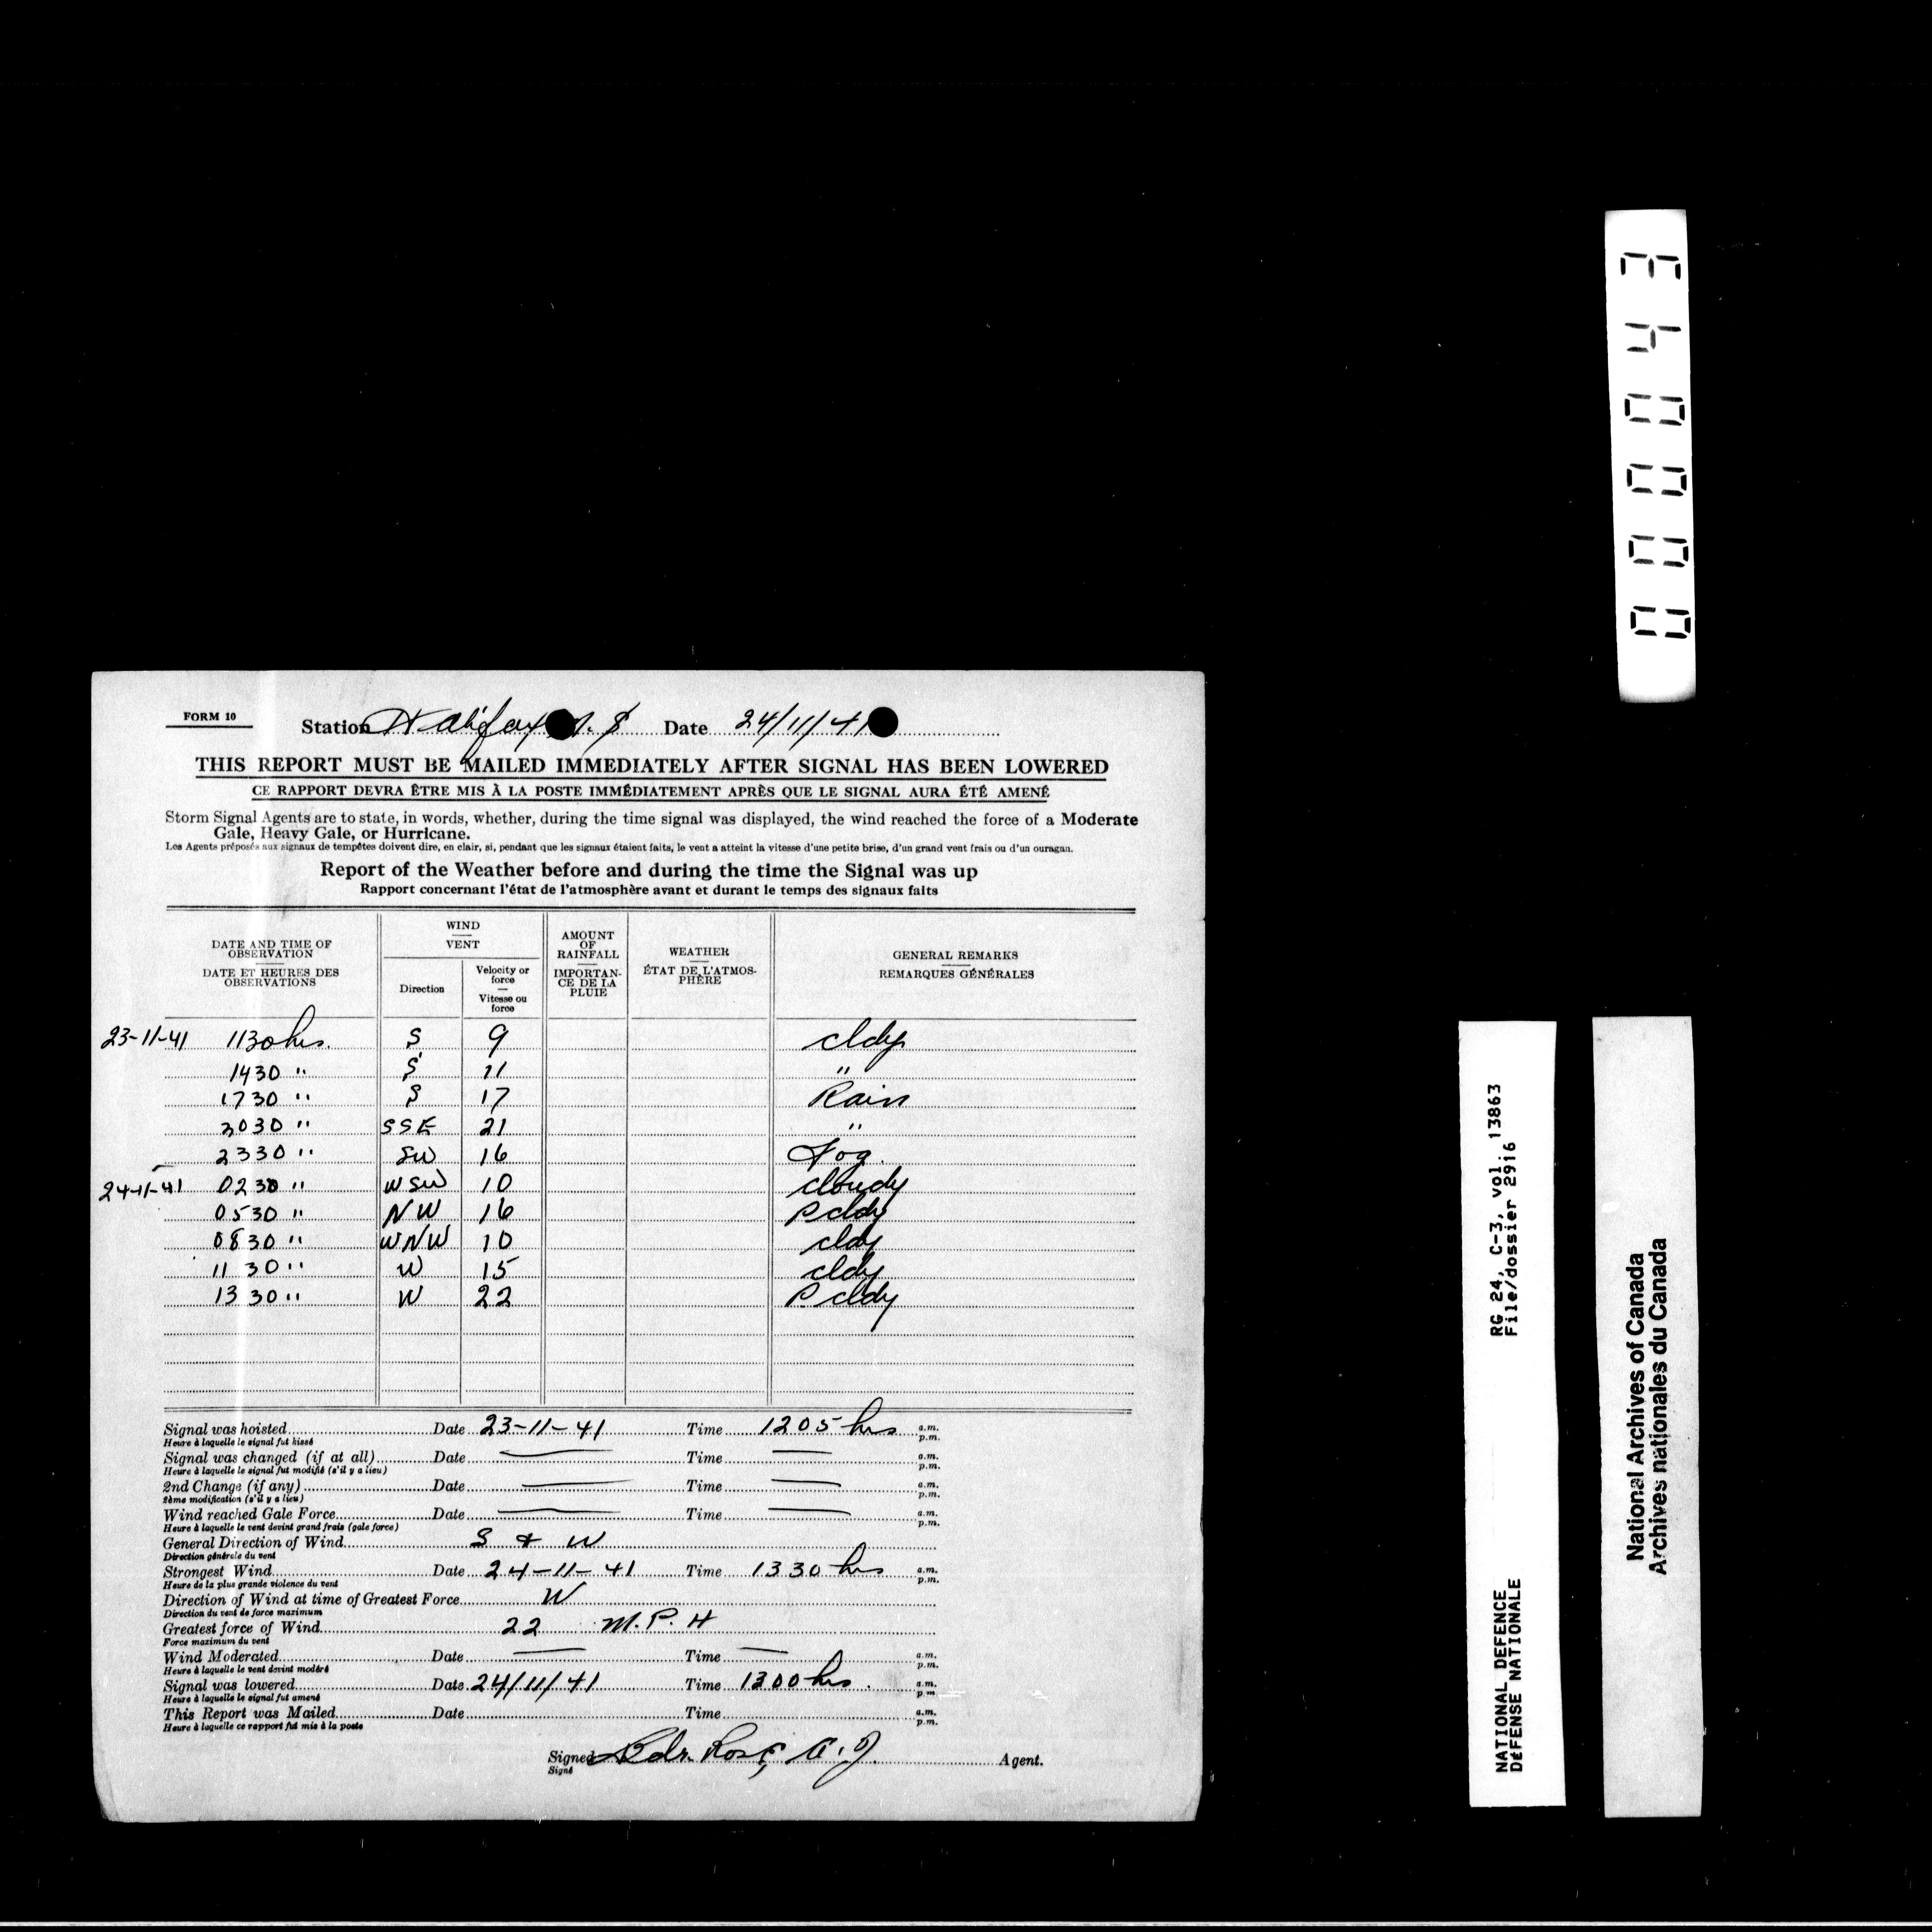 FORM 10
Station Halifax N. S Date 24/11/41
THIS REPORT MUST BE MAILED IMMEDIATELY AFTER SIGNAL HAS BEEN LOWERED
CE RAPPORT DEVRA ÊTRE MIS À LA POSTE IMMÉDIATEMENT APRÈS QUE LE SIGNAL AURA ÉTÉ AMENÉ
Storm Signal Agents are to state, in words, whether, during the time signal was displayed, the wind reached the force of a Moderate
Gale, Heavy Gale, or Hurricane.
Les Agents préposés aux signaux de tempêtes doivent dire, en clair, si, pendant que les signaux étaient faits, le vent a atteint la vitesse d'une petite brise, d'un grand vent frais ou d'un ouragan.
Report of the Weather before and during the time the Signal was up
Rapport concernant l'état de l'atmosphère avant et durant le temps des signaux faits
DATE AND TIME OF OBSERVATION
DATE ET HEURES DES OBSERVATIONS
WIND
VENT
Direction
Velocity or force
Vitesse ou force
AMOUNT OF RAINFALL
IMPORTANCE DE LA PLUIE
WEATHER
ÉTAT DE L'ATMOSPHÈRE
GENERAL REMARKS
REMARQUES GÉNÉRALES
23-11-41 1130 hrs. S 9 cldy
1430 " S 11 "
1730 " S 17 Rain
2030 " SSE 21 "
2330 " SW 16 Fog.
24-11-41 0230 " WSW 10 cloudy
0530 " NW 16 P cldy
0830 " WNW 10 cldy
1130 " W 15 cldy
1330 " W 22 P cldy
Signal was hoisted Date 23-11-41 Time 1205 hrs a.m. p.m.
Heure à laquelle le signal fut hissé
Signal was changed (if at all) Date — Time — a.m. p.m.
Heure à laquelle le signal fut modifié (s'il y a lieu)
2nd Change (if any) Date — Time — a.m. p.m.
2ème modification (s'il y a lieu)
Wind reached Gale Force Date — Time — a.m. p.m.
Heure à laquelle le vent devint grand frais (gale force)
General Direction of Wind S & W
Direction générale du vent
Strongest Wind Date 24-11-41 Time 1330 hrs a.m. p.m.
Heure de la plus grande violence du vent
Direction of Wind at time of Greatest Force W
Direction du vent de force maximum
Greatest force of Wind 22 M.P.H
Force maximum du vent
Wind Moderated Date — Time — a.m. p.m.
Heure à laquelle le vent devint modéré
Signal was lowered Date 24/11/41 Time 1300 hrs. a.m. p.m
Heure à laquelle le signal fut amené
This Report was Mailed Date Time a.m. p.m.
Heure à laquelle ce rapport fut mis à la poste
Signed Bdr. Ross, A. J. Agent.
Signé
000043
RG 24, C-3, vol. 13863
File/dossier 2916
NATIONAL DEFENCE
DÉFENSE NATIONALE
National Archives of Canada
Archives nationales du Canada